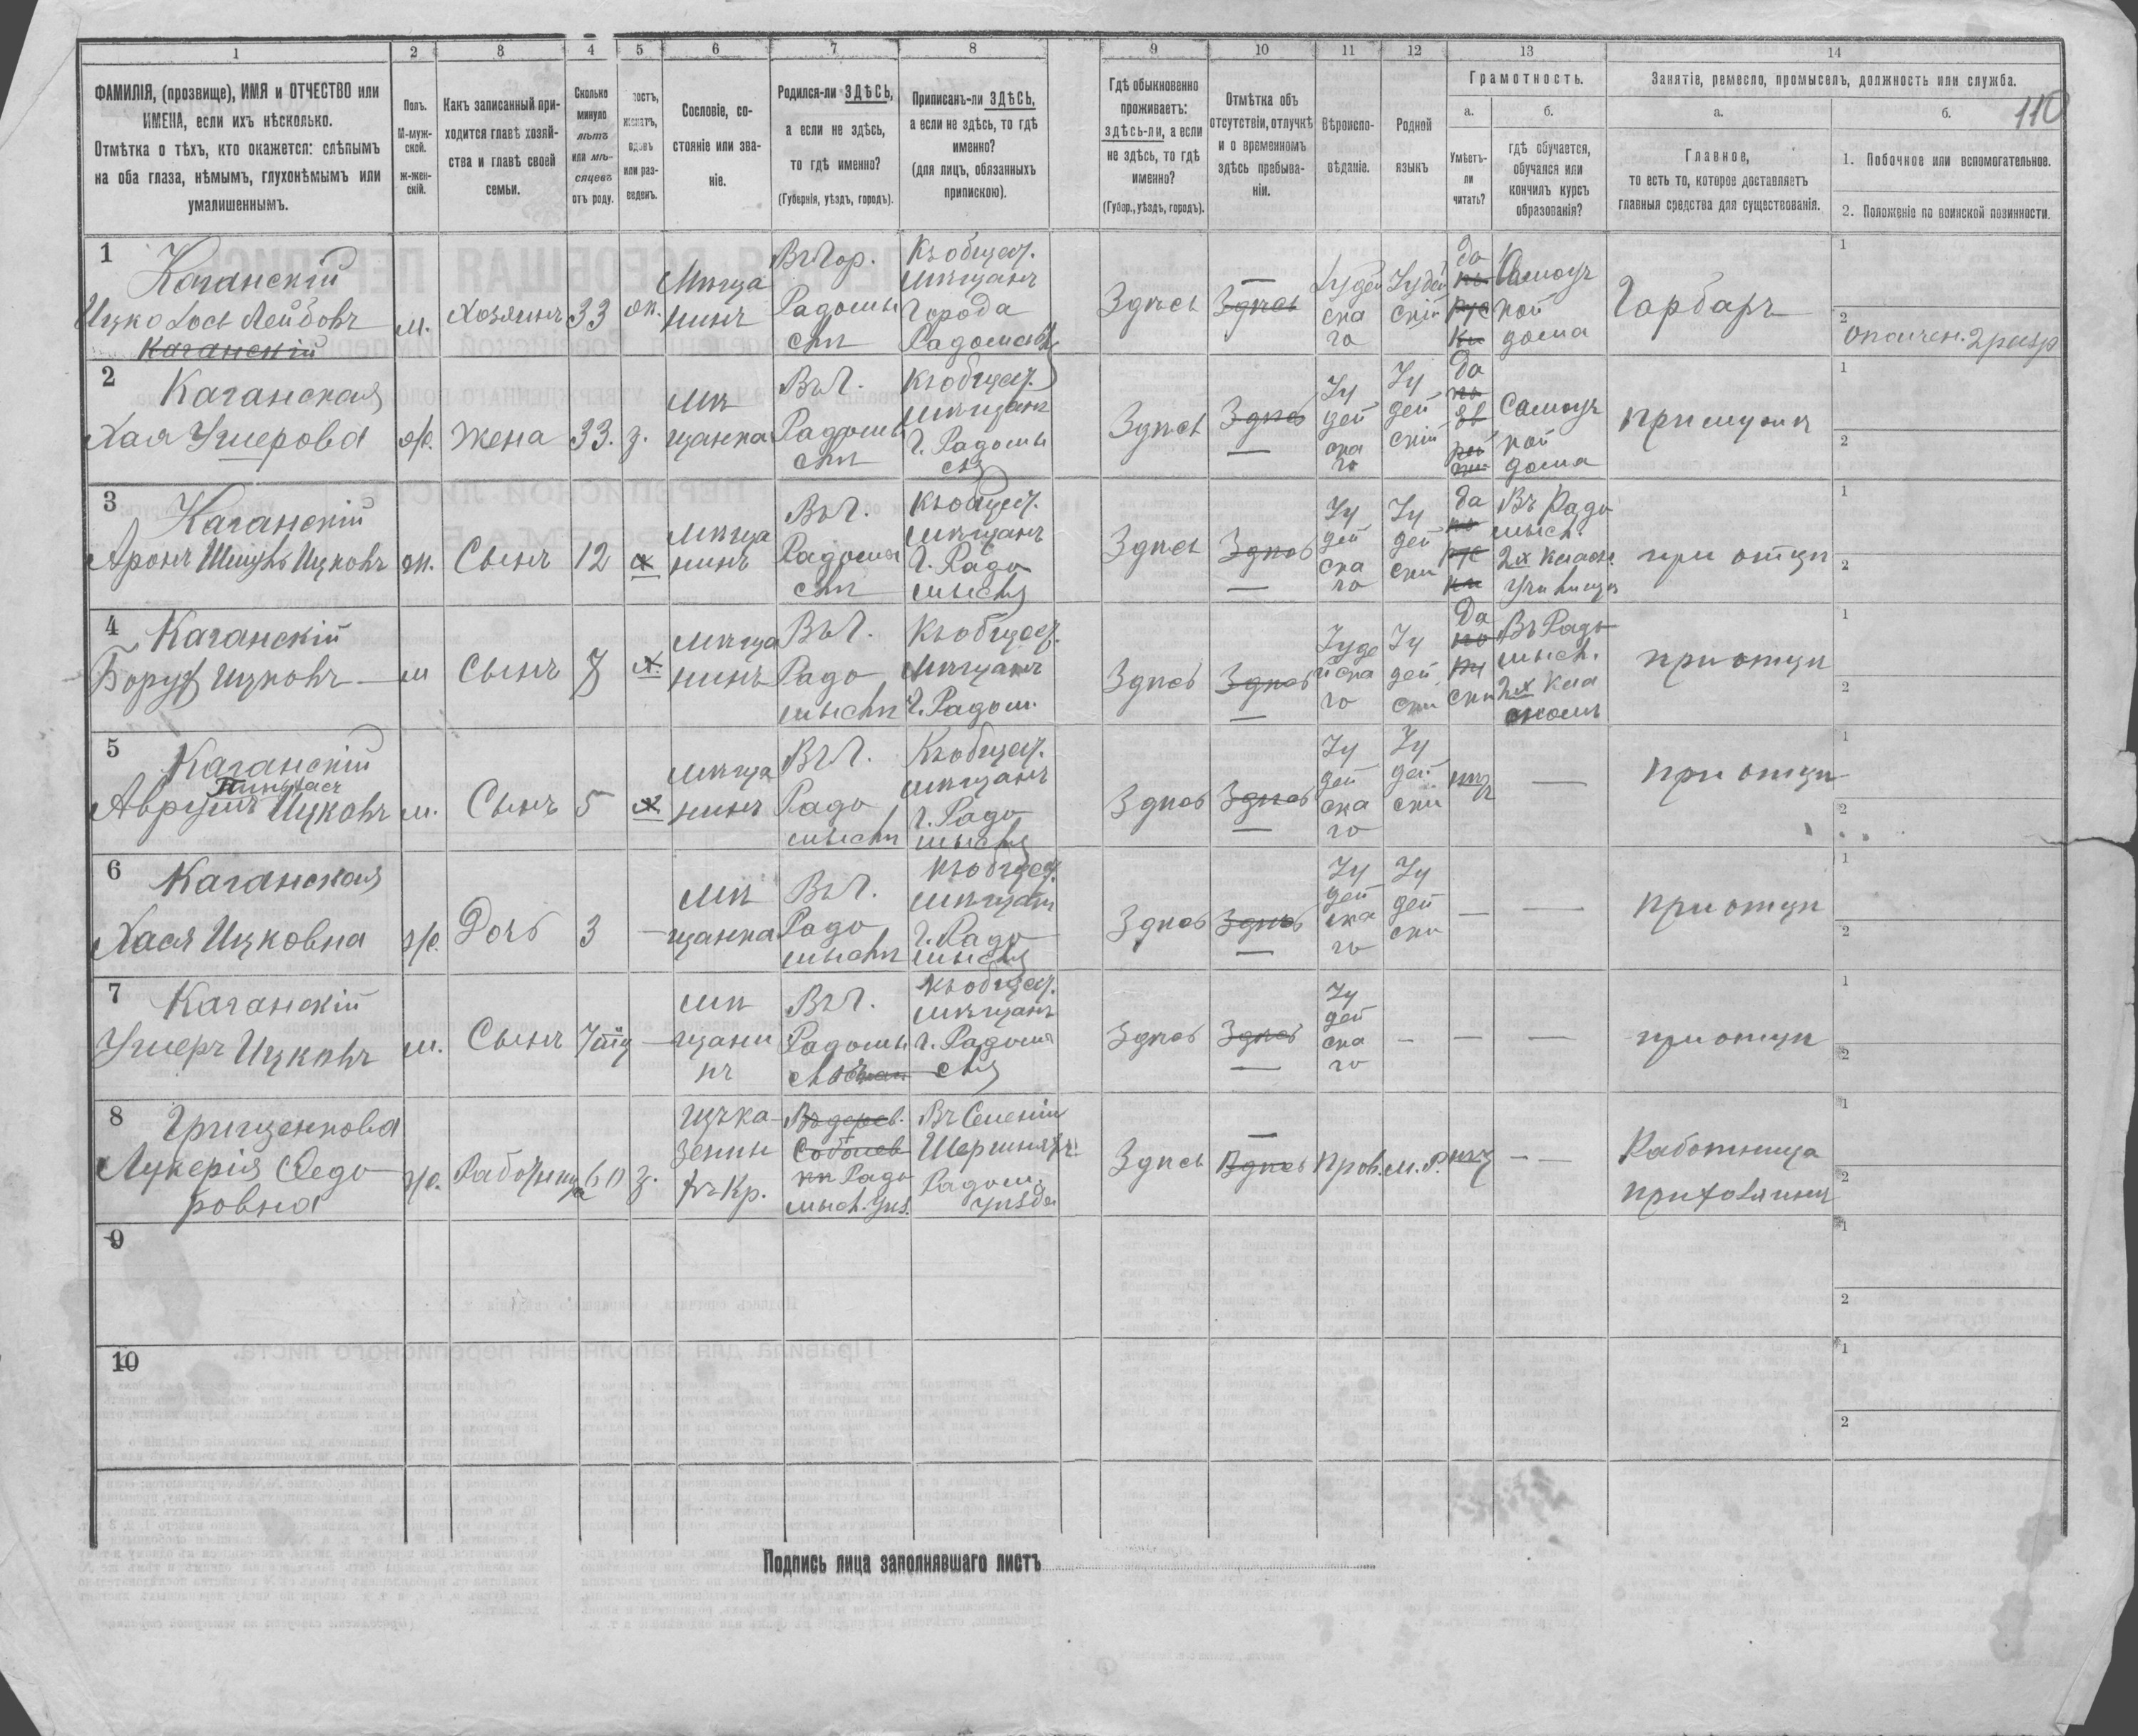 1 2 3 4 5 6 7 8 9 10 11 12 13 14
ФАМИЛІЯ, (прозвище), ИМЯ и ОТЧЕСТВО или
ИМЕНА, если ихъ нѣсколько.
Отмѣтка о тѣхъ, кто окажется: слѣпымъ
на оба глаза, нѣмымъ, глухонѣмымъ или
умалишеннымъ.
Полъ.
М-муж-
ской.
Ж-жен-
скій.
Какъ записанный при-
ходится главѣ хозяй-
ства и главѣ своей
семьи.
Сколько
минуло
лѣтъ
или мѣ-
сяцевъ
отъ роду.
ростъ,
женатъ,
вдовъ
или раз-
веденъ.
Сословіе, со-
стояніе или зва-
ніе.
Родился-ли ЗДѢСЬ,
а если не здѣсь,
то гдѣ именно?
(Губернія, уѣздъ, городъ).
Приписанъ-ли ЗДѢСЬ,
а если не здѣсь, то гдѣ
именно?
(для лицъ, обязанныхъ
припискою).
Гдѣ обыкновенно
проживаетъ:
здѣсь-ли, а если
не здѣсь, то гдѣ
именно?
(Губер., уѣздъ, городъ).
Отмѣтка объ
отсутствіи, отлучкѣ
и о временномъ
здѣсь пребыва-
ніи.
Вѣроиспо-
вѣданіе.
Родной
языкъ
Грамотность.
а.
Умѣетъ-
ли
читать?
б.
гдѣ обучается,
обучался или
кончилъ курсъ
образованія?
Занятіе, ремесло, промыселъ, должность или служба.
а.
Главное,
то есть то, которое доставляетъ
главныя средства для существованія.
б.
110
1. Побочное или вспомогательное.
2. Положеніе по воинской повинности.
1
Каганскій
Ицко Лейбовъ
Каганскій
м.
Хозяинъ
33
Мѣща
нинъ
Въ Гор.
Радомы
слѣ
Къ общест.
мѣщанъ
Города
Здѣсь
Здѣсь
Іудей
ска
го
Іудей
скій
да
Самоуч
кой
дома
Гарбаръ
1
2
ополчен. 2 разр
2
Каганская
Хая Умерова
ж.
Жена
33.
з.
мѣ
щанка
Въ Г.
Радомы
слѣ
Къ общест.
мѣщанъ
г. Радомы
Здѣсь
Здѣсь
Іу
дей
ска
го
Іу
дей
скій
да
Самоуч
кой
дома
при мужѣ
1
2
3
Каганскій
Аронъ Ицковъ
Сынъ
12
х
мѣща
нинъ
Въ Г.
Радомы
слѣ
Къ общест.
мѣщанъ
г. Радо
Здѣсь
Здѣсь
Іу
дей
ска
го
Іу
дей
ски
да
Въ Радо
мысл.
2х класн.
училищѣ
при отцѣ
1
2
4
Каганскій
Борух Ицковъ
м
Сынъ
7
х.
мѣща
нинъ
Въ Г.
Радо
мыслѣ
Къ общест.
мѣщанъ
г. Радом.
Здѣсь
Здѣсь
Іуде
йска
го
Іу
дей
ски
да
Въ Радо
мысл.
2х кла
сномъ
при отцѣ
1
2
5
Каганскій
Пинхас
Аврумъ Ицковъ
м.
Сынъ
5
х.
мѣща
нинъ
Въ Г.
Радо
мыслѣ
Къ общест.
мѣщанъ
г. Радо
Здѣсь
Здѣсь
Іу
дей
ска
го
Іу
дей
скій
нѣт
при отцѣ
1
2
6
Каганская
Хася Ицковна
ж.
Дочь
3
мѣ
щанка
Въ Г.
Радо
мыслѣ
Къ общест.
мѣщанъ
г. Радо
Здѣсь
Здѣсь
Іу
дей
ска
го
Іу
дей
ски
при отцѣ
1
2
7
Каганскій
Умеръ Ицковъ
м.
Сынъ
мѣ
щани
нъ
Въ Г.
Радомы
Къ общест.
мѣщанъ
г. Радомы
Здѣсь
Здѣсь
Іу
дей
ска
го
при отцѣ
1
2
8
Грищенкова
Лукерія Ѳедо
ровна
ж.
Работница
60
з.
изъ ка
зенны
хъ кр.
Въ дерев.
Соболев
кѣ Радо
мысл. уѣз.
Въ Селеніи
Радом.
уѣзда
Здѣсь
Здѣсь
прав.
м. р.
нѣт
Работница
при хозяинѣ
1
2
9
1
2
10
1
2
Подпись лица заполнявшаго листъ